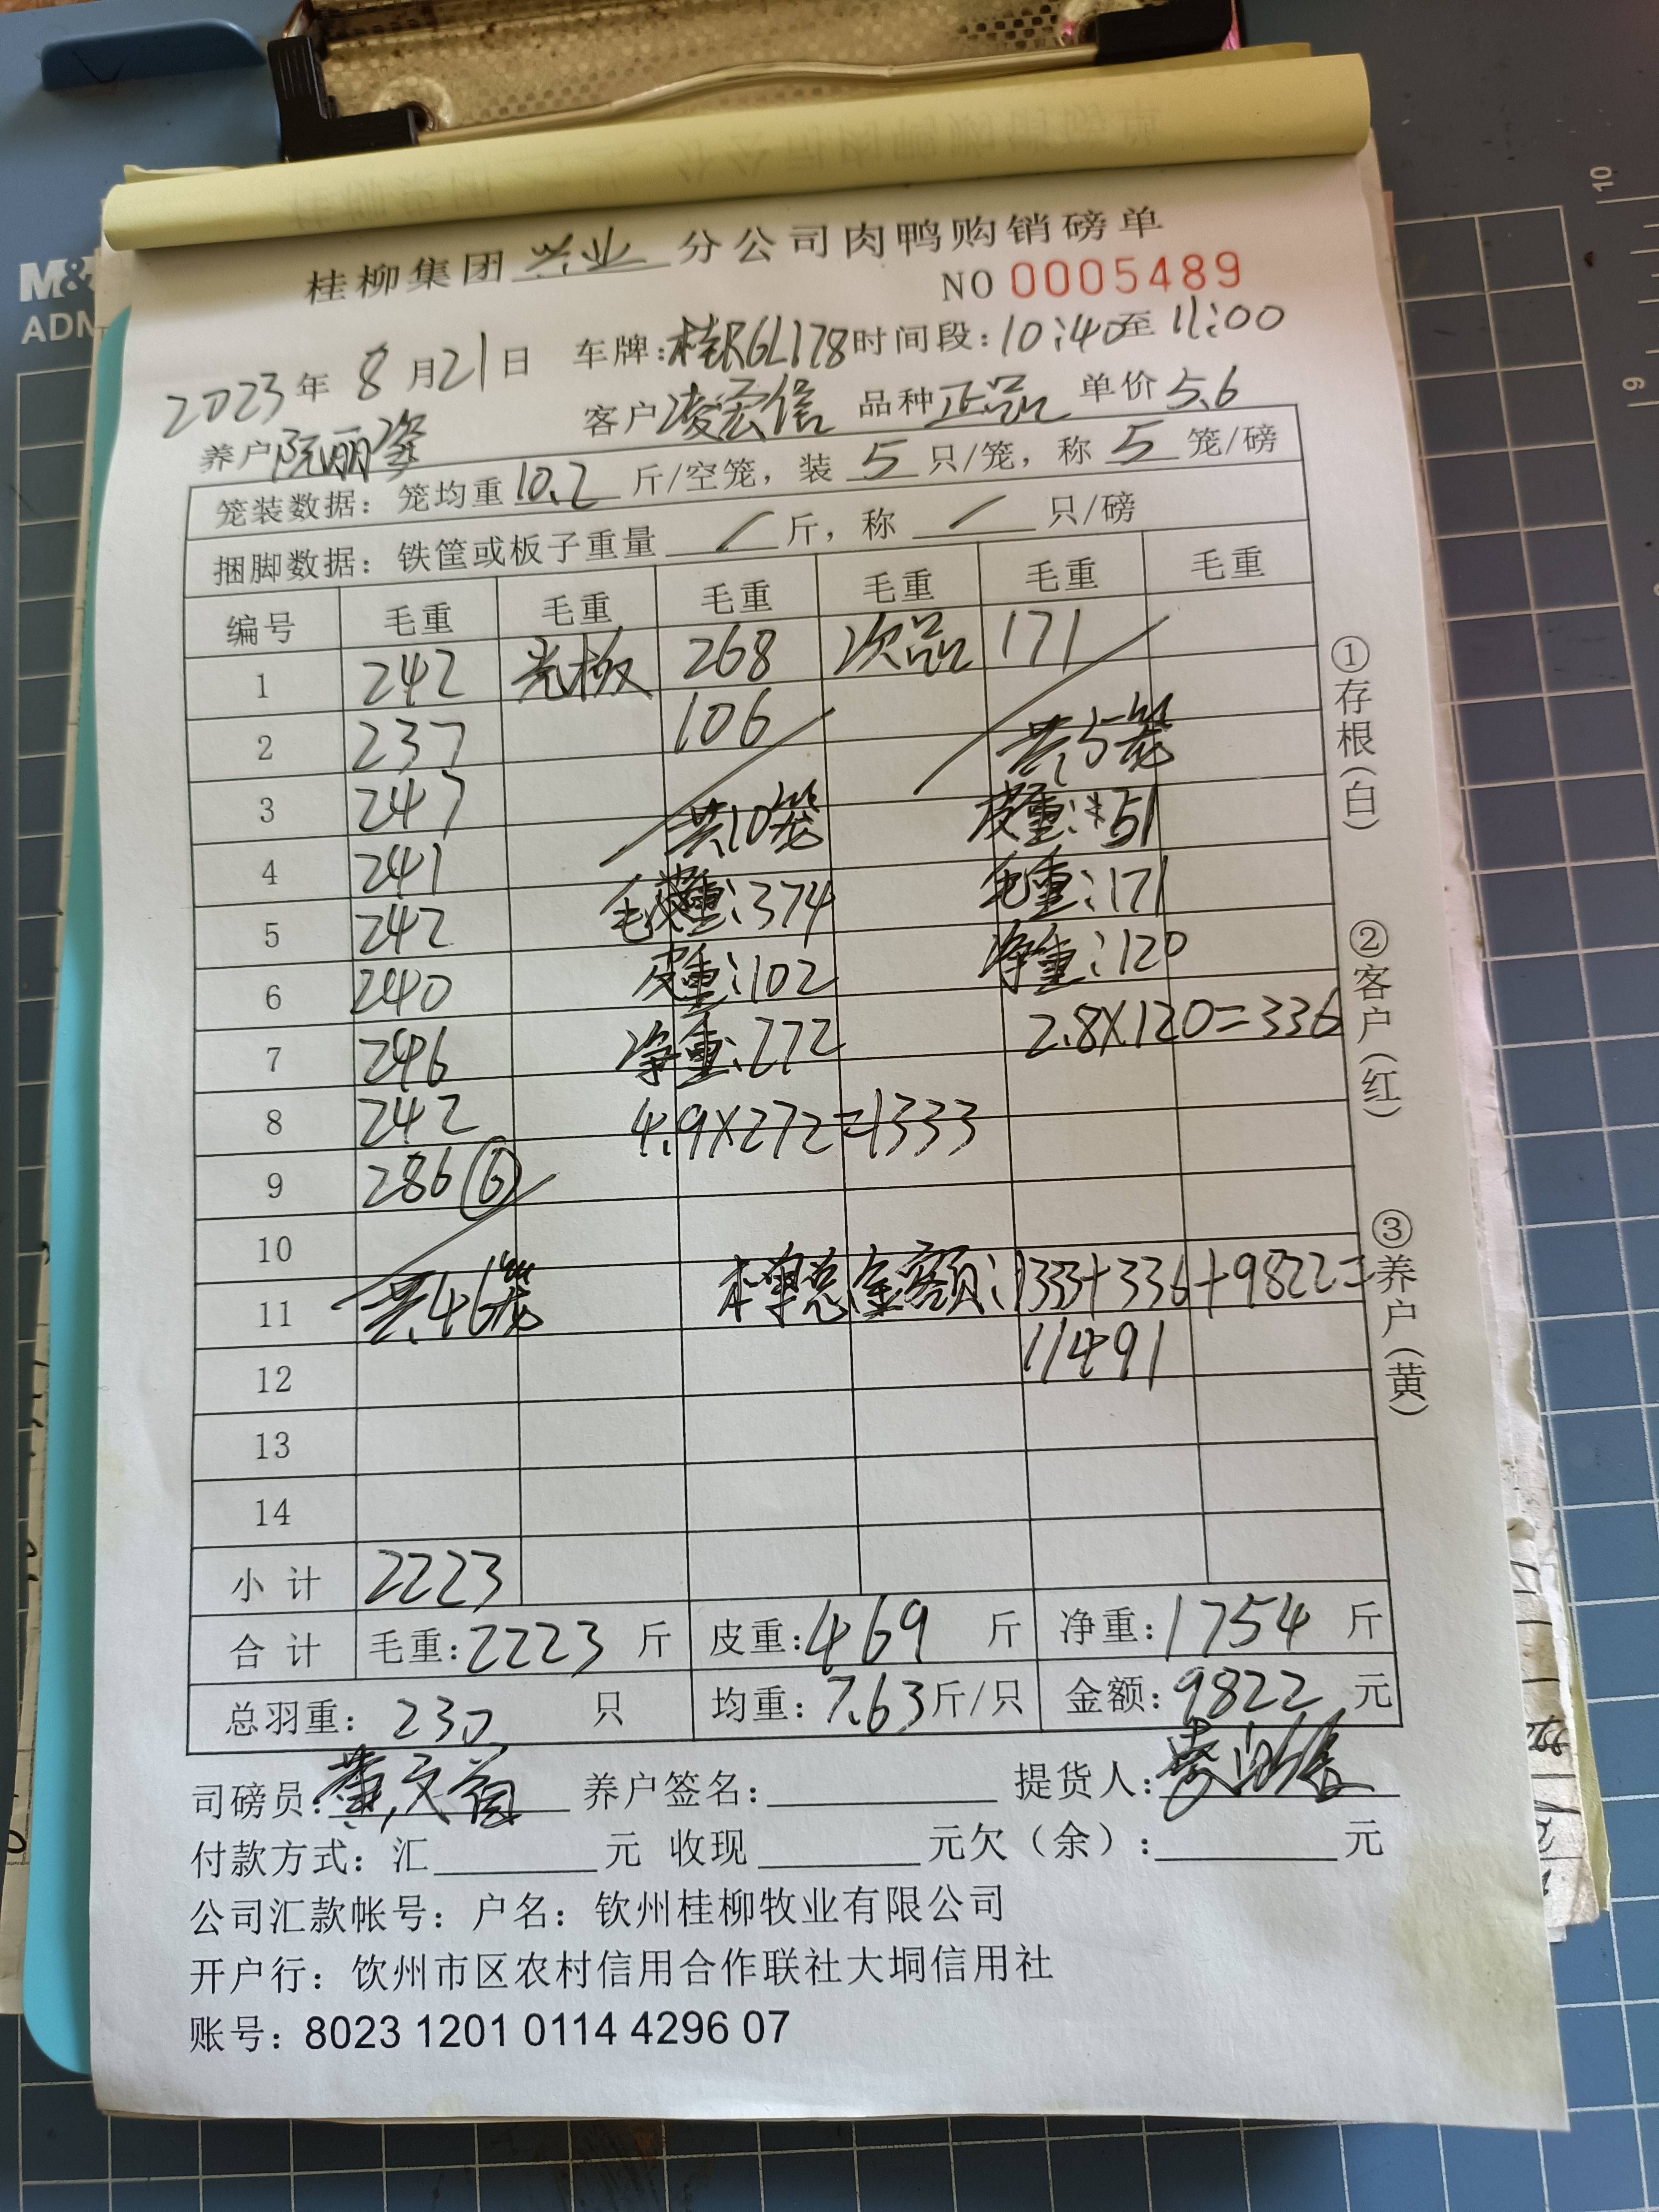 桂柳集团 兴业 分公司肉鸭购销磅单
NO 0005489
2023年 8月21日 车牌:桂RGL178 时间段:10:40至11:00
养户 阮丽姿 客户 凌宏信 品种 正品 单价 5.6
笼装数据：笼均重 10.2 斤/空笼，装 5 只/笼，称 5 笼/磅
捆脚数据：铁筐或板子重量 / 斤，称 / 只/磅
编号 毛重 毛重 毛重 毛重 毛重 毛重
1 242 光板 268 次品 171
2 237 106 共5笼
3 247 共10笼 皮重:51
4 241 毛重:374 毛重:171
5 242 皮重:102 净重:120
6 240 净重:272 2.8X120=336
7 246 4.9X272=1333
8 242
9 286 (6)
10
11 共46笼 本单总金额:1333+336+9822=
12 11491
13
14
小计 2223
合计 毛重:2223 斤 皮重:469 斤 净重:1754 斤
总羽重: 230 只 均重:7.63斤/只 金额:9822 元
司磅员: 养户签名: 提货人:
付款方式：汇 元 收现 元欠（余）: 元
公司汇款帐号：户名：钦州桂柳牧业有限公司
开户行：饮州市区农村信用合作联社大垌信用社
账号：8023 1201 0114 4296 07
①存根(白)
②客户(红)
③养户(黄)
M&
ADM
10
9